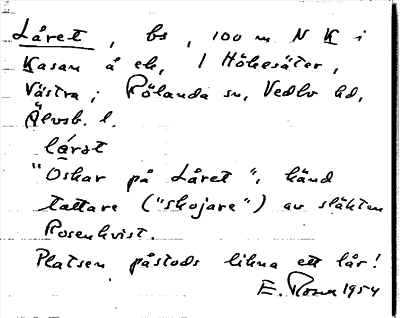 Låret, bs, 100 m N K i
Kasan å ek, 1 Hökesäter,
Västra; Rölanda sn, Vedbo hd,
Älvsb. l.
lárat
"Oskar på Låret", känd
tattare ("skojare") av släkten
Rosenkvist.
Platsen påstods likna ett lår!
E. 1954